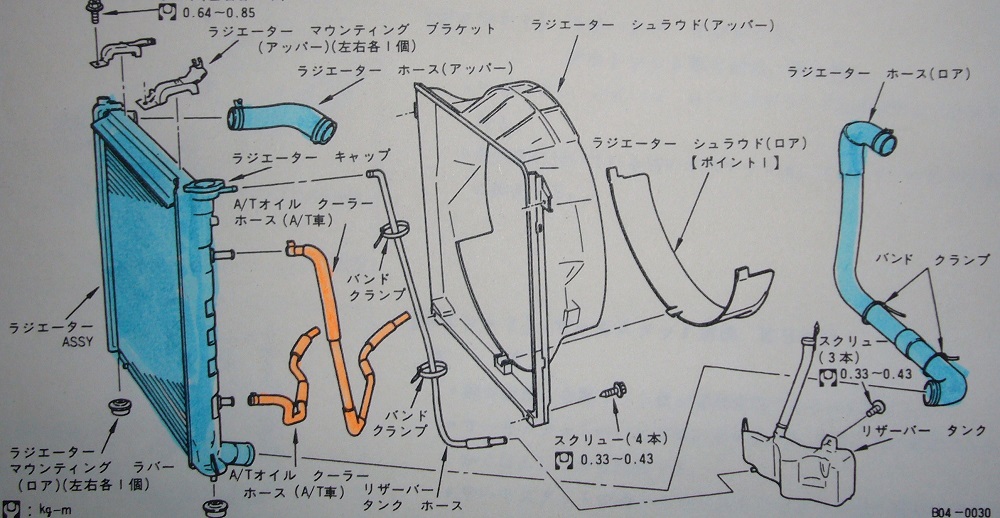 0.64~0.85
ラジエーター マウンティング ブラケット
(アッパー)(左右各1個)
ラジエーター シュラウド(アッパー)
ラジエーター ホース(アッパー)
ラジエーター ホース(ロア)
ラジエーター キャップ
ラジエーター シュラウド(ロア)
【ポイント1】
A/Tオイル クーラー
ホース(A/T車)
バンド
クランプ
バンド クランプ
ラジエーター
ASSY
スクリュー
(3本)
0.33~0.43
バンド
クランプ
リザーバー タンク
スクリュー(4本)
0.33~0.43
ラジエーター
マウンティング ラバー
(ロア)(左右各1個)
A/Tオイル クーラー
ホース(A/T車)
リザーバー
タンク ホース
: kg-m
B04-0030